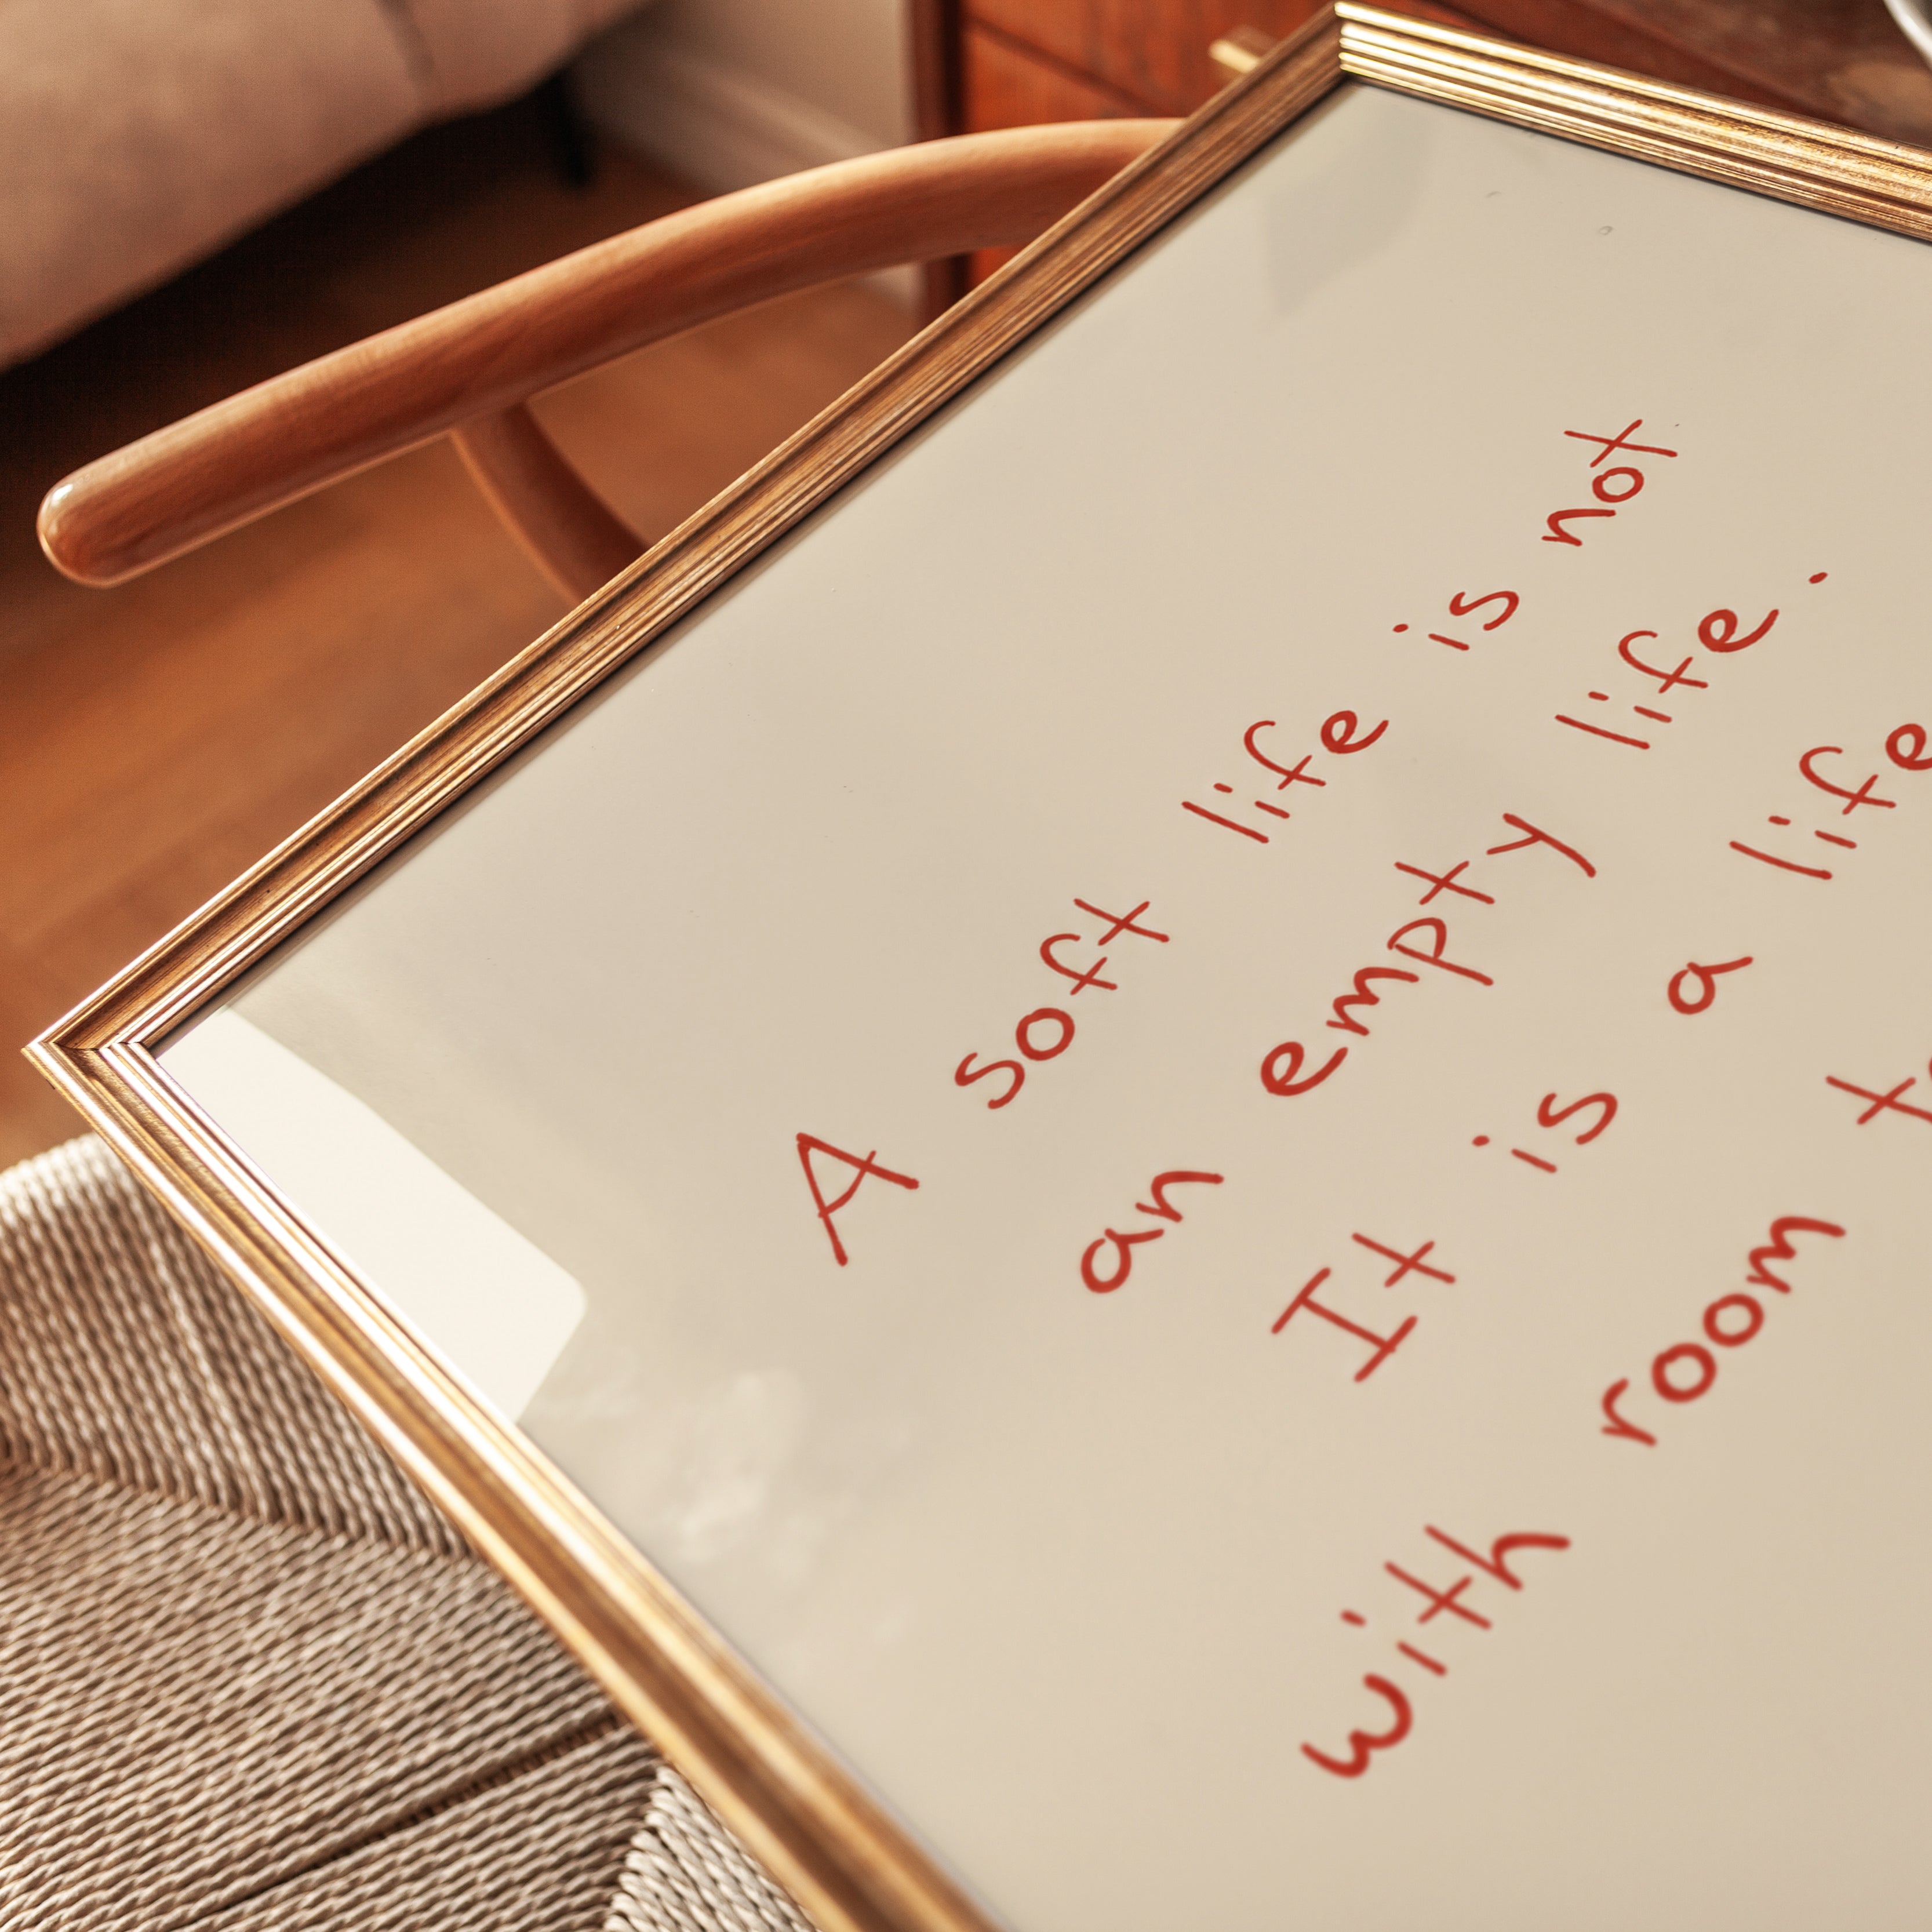 A soft life is not
an empty life.
It is a life
with room